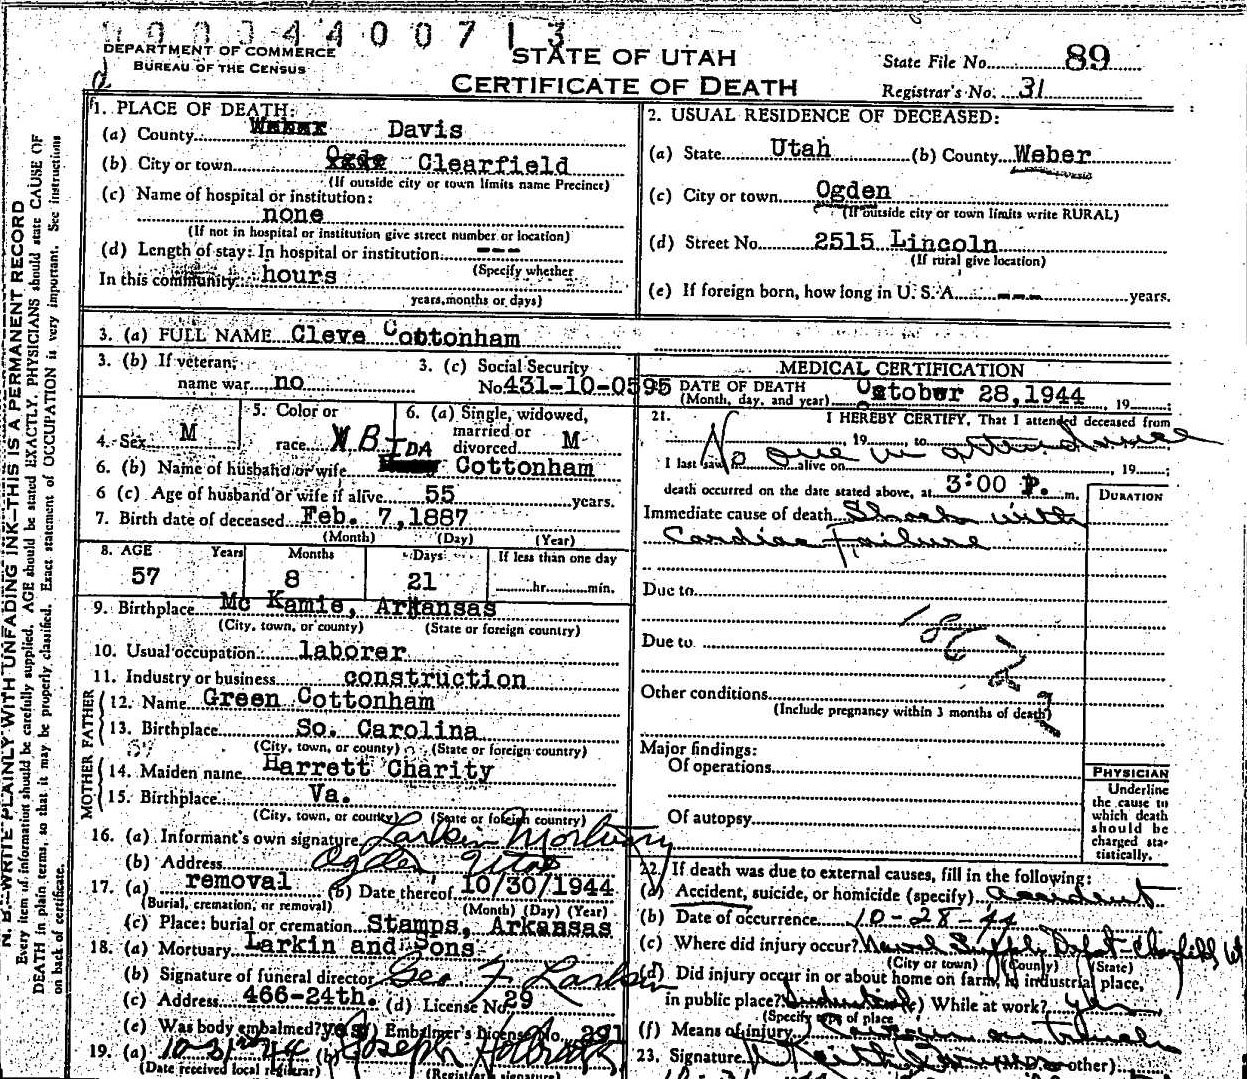 00034400713
DEPARTMENT OF COMMERCE
BUREAU OF THE CENSUS
STATE OF UTAH
CERTIFICATE OF DEATH
State File No. 89
Registrar's No. 31
N. B.—WRITE PLAINLY WITH UNFADING INK—THIS IS A PERMANENT RECORD
Every item of information should be carefully supplied. AGE should be stated EXACTLY. PHYSICIANS should state CAUSE OF
DEATH in plain terms, so that it may be properly classified. Exact statement of OCCUPATION is very important. See instructions
on back of certificate.
1. PLACE OF DEATH:
(a) County Weber Davis
(b) City or town Clearfield
(If outside city or town limits name Precinct)
(c) Name of hospital or institution:
none
(If not in hospital or institution give street number or location)
(d) Length of stay: In hospital or institution ---
(Specify whether
In this community hours
years, months or days)
2. USUAL RESIDENCE OF DECEASED:
(a) State Utah (b) County Weber
(c) City or town Ogden
(If outside city or town limits write RURAL)
(d) Street No. 2515 Lincoln
(If rural give location)
(e) If foreign born, how long in U. S. A. --- years.
3. (a) FULL NAME Cleve Cottonham
3. (b) If veteran,
name war no
3. (c) Social Security
No. 431-10-0595
4. Sex M
5. Color or
race B
6. (a) Single, widowed,
married or
divorced M
6. (b) Name of husband or wife IDA Cottonham
6 (c) Age of husband or wife if alive 55 years.
7. Birth date of deceased Feb. 7, 1887
(Month) (Day) (Year)
8. AGE Years Months Days If less than one day
57 8 21 hr. min.
9. Birthplace Mc Kamie, Arkansas
(City, town, or county) (State or foreign country)
10. Usual occupation laborer
11. Industry or business construction
FATHER
12. Name Green Cottonham
13. Birthplace So. Carolina
(City, town, or county) (State or foreign country)
MOTHER
14. Maiden name Harrett Charity
15. Birthplace Va.
(City, town, or county) (State or foreign country)
16. (a) Informant's own signature Larkin Mortuary
(b) Address Ogden Utah
17. (a) removal (b) Date thereof 10/30/1944
(Burial, cremation, or removal) (Month) (Day) (Year)
(c) Place: burial or cremation Stamps, Arkansas
18. (a) Mortuary Larkin and Sons
(b) Signature of funeral director Geo. F. Larkin
(c) Address 466-24th. (d) License No. 29
(e) Was body embalmed? yes (f) Embalmer's License No. 291
19. (a) 10-31-44 (b) Joseph
(Date received local registrar) (Registrar's signature)
MEDICAL CERTIFICATION
DATE OF DEATH
(Month, day, and year) October 28, 1944, 19 ;
21. I HEREBY CERTIFY, That I attended deceased from
, 19 , to No one in attendance
I last saw h alive on , 19 ;
death occurred on the date stated above, at 3:00 P. m.
DURATION
Immediate cause of death Shock with
Cardiac Failure
Due to
Due to
Other conditions
(Include pregnancy within 3 months of death)
Major findings:
Of operations
Of autopsy
PHYSICIAN
Underline
the cause to
which death
should be
charged sta-
tistically.
22. If death was due to external causes, fill in the following:
(a) Accident, suicide, or homicide (specify) accident
(b) Date of occurrence 10-28-44
(c) Where did injury occur? Naval Supply Depot Clearfield Ut
(City or town) (County) (State)
(d) Did injury occur in or about home on farm, in industrial place,
in public place? Industrial (e) While at work? yes
(Specify type of place
(f) Means of injury
23. Signature (M.D. or other)